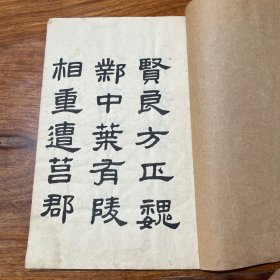 賢良方正魏
鄴中葉有陵
相重遭莒郡